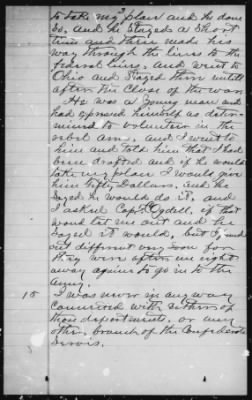 to take my place and he done
so, and he stayed a short
time and then made his
way through the lines to the
federal lines, and went to
Ohio and stayed there untill
after the Close of the war
He was a young man and
had expressed himself as deter-
mined to volunteer in the
rebel Army, and I went to
him and told him that I had
been drafted and if he would
take my place I would give
him Fifty Dollars, and he
Sayed he would do it, and
I asked Capt Lydell, if that
would let me out and he
Sayed it would, but I found
out different very soon for
they were after me right
away again to go in to the
Army.
18 I was never in any way
connected with either of
these departments, or any
other branch of the Confederate
Servis.